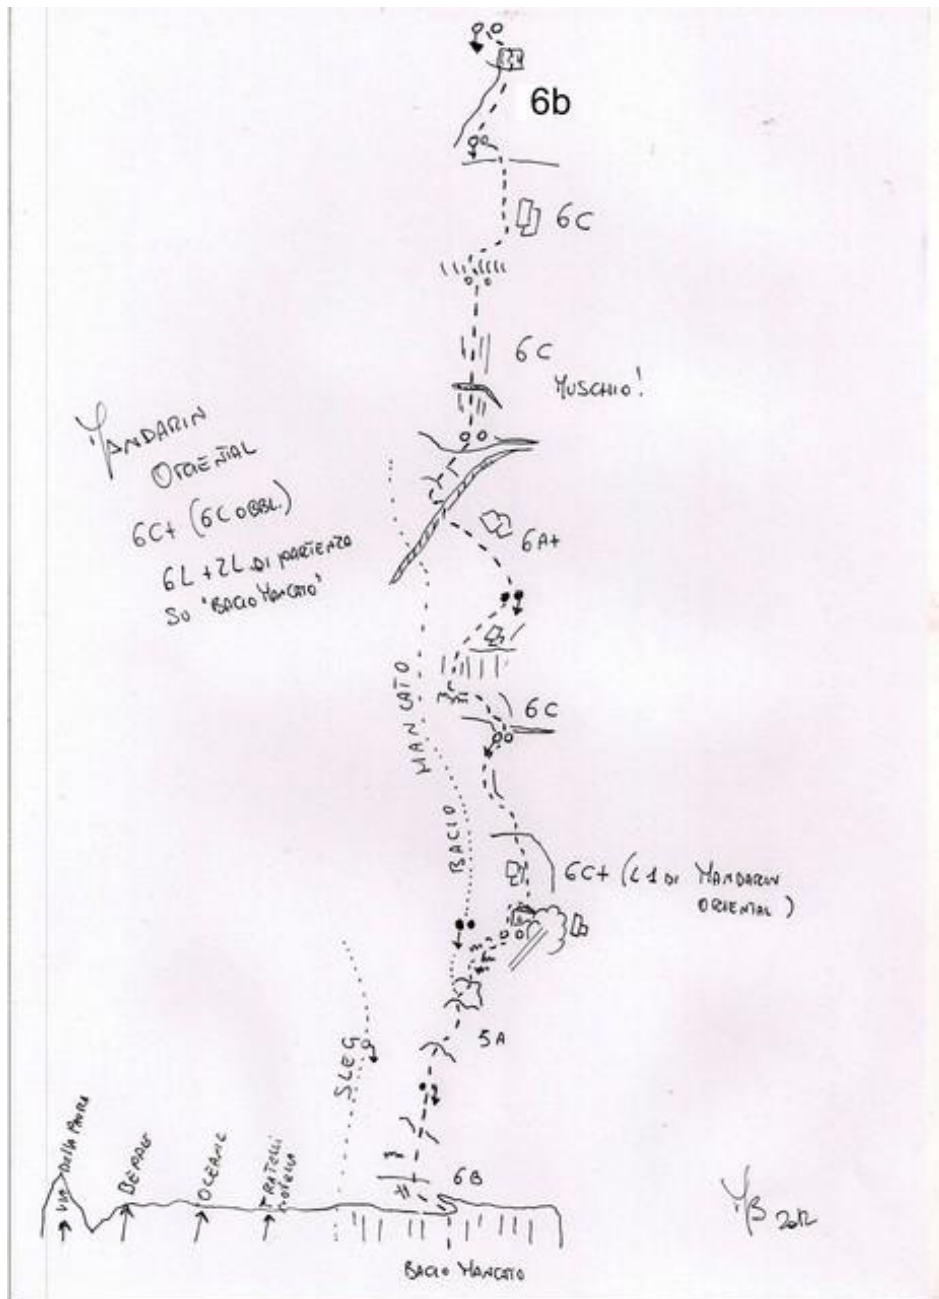 6b
6C
6C
MUSCHIO!
MANDARIN
ORIENTAL
6C+ (6C OBBL.)
6L + 2L DI PARTENZA
SU "BACIO MANCATO"
6A+
MANCATO
6C
BACIO
6C+ (L1 DI MANDARIN
ORIENTAL)
5A
SLEG
6B
VIA DELLA PAURA
OCEANIC
FRATELLI
BACIO MANCATO
MB 2012